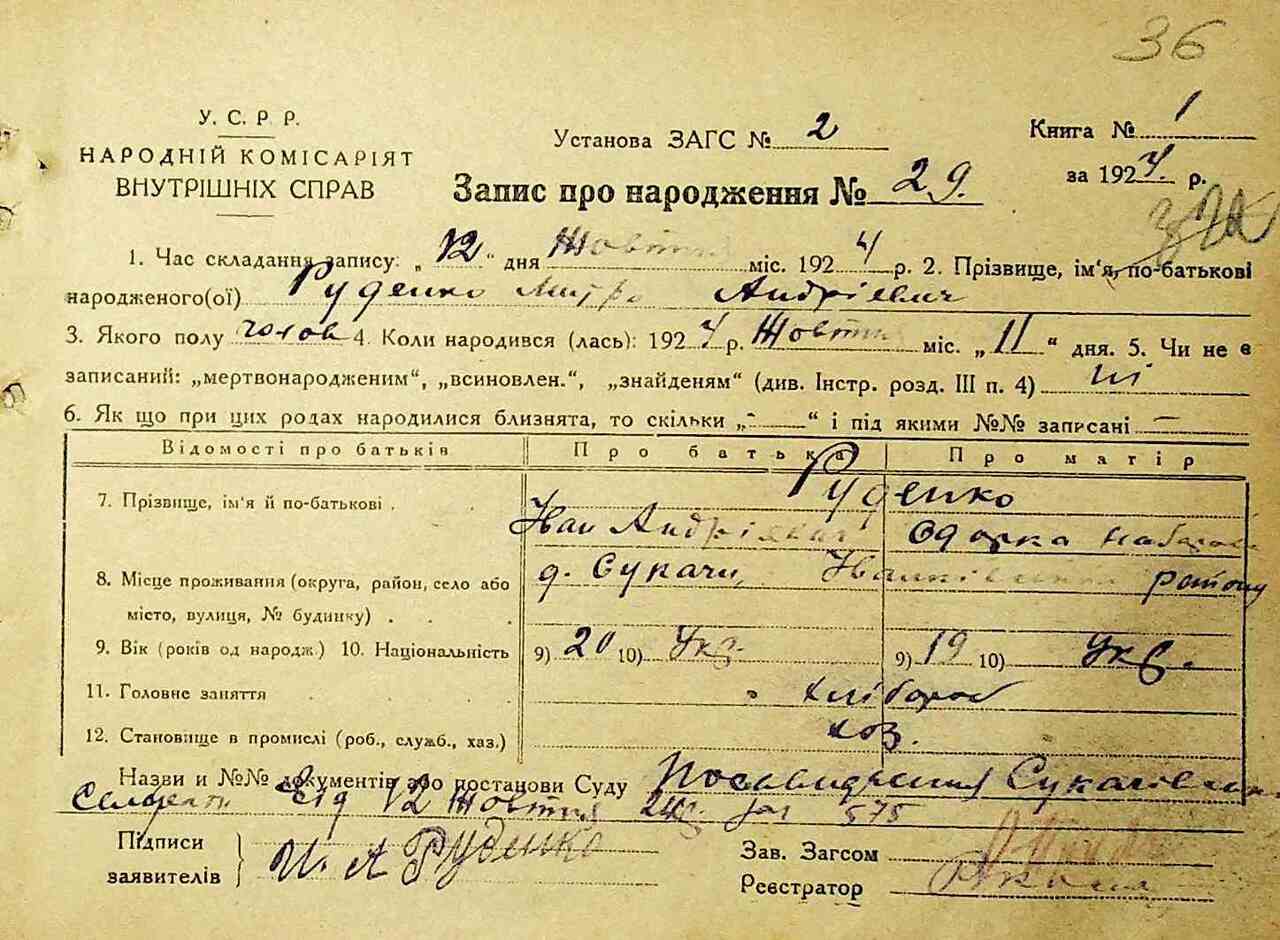 36
У. С. Р. Р.
НАРОДНІЙ КОМІСАРІЯТ
ВНУТРІШНІХ СПРАВ
Установа ЗАГС № 2
Книга № 1
Запис про народження № 29.
за 1924. р.
1. Час складання запису: „12“ дня Жовтня міс. 1924 р. 2. Прізвище, ім'я, по-батькові
народженого(ої) Руденко Андрієвич
3. Якого полу чолов 4. Коли народився (лась): 1924 р. Жовтня міс. „11“ дня. 5. Чи не є
записаний: „мертвонародженим“, „всиновлен.“, „знайденям“ (див. Інстр. розд. III п. 4) ні
6. Як що при цих родах народилися близнята, то скільки „-“ і під якими №№ записані -
Відомості про батьків Про батька Про матір
7. Прізвище, ім'я й по-батькові . Руденко
Іван Андрієвич Одарка
8. Місце проживання (округа, район, село або д. Сукачи, Іванківський району
місто, вулиця, № будинку) . . .
9. Вік (років од народж.) 10. Національність 9) 20 10) Укр. 9) 19 10) Укр.
11. Головне заняття . . . хлібороб
12. Становище в промислі (роб., служб., хаз.) хоз.
Назви и №№ документів або постанови Суду Посвидчення
від 12 Жовтня 24 р. 575
Підписи
заявителів И. А Руденко
Зав. Загсом
Реєстратор